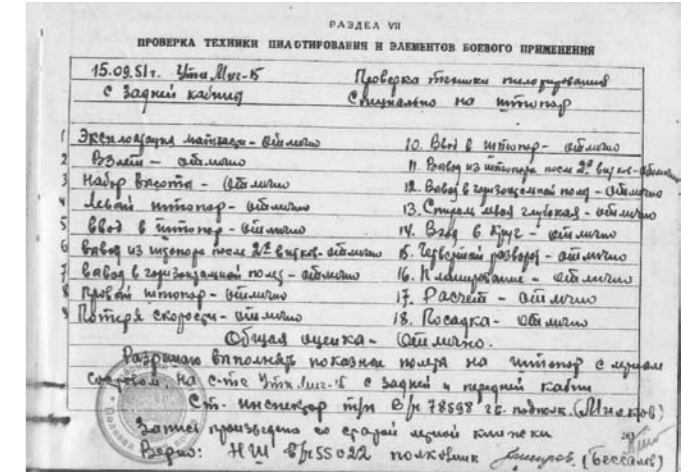 РАЗДЕЛ VII
ПРОВЕРКА ТЕХНИКИ ПИЛОТИРОВАНИЯ И ЭЛЕМЕНТОВ БОЕВОГО ПРИМЕНЕНИЯ
15.09.51г. Ути Миг-15
с задней кабины
Проверка техники пилотирования
Специально на штопор
1 Эксплоатация матчасти - отлично
2 Взлет - отлично
3 Набор высоты - отлично
4 Левый штопор - отлично
5 Ввод в штопор - отлично
6 вывод из штопора после 2х витков - отлично
7 вывод в горизонтальной полет - отлично
8 Правый штопор - отлично
9 Потеря скорости - отлично
10. Ввод в штопор - отлично
11. Вывод из штопора после 2х витков - отлично
12. Вывод в горизонтальной полет - отлично
13. Спираль левая глубокая - отлично
14. Вход в круг - отлично
15. Четвертый разворот - отлично
16. Планирование - отлично
17. Расчет - отлично
18. Посадка - отлично
Общая оценка - Отлично.
Разрешаю выполнять показной полет на штопор с летным
составом, на с-те Ути Миг-15 с задней и передней кабин
Ст. инспектор т/п в/ч 78598 гв. подполк. (Мнаков)
Запись произведена со старой летной книжки
Верно: НШ в/ч 55022 полковник (Бессалов)